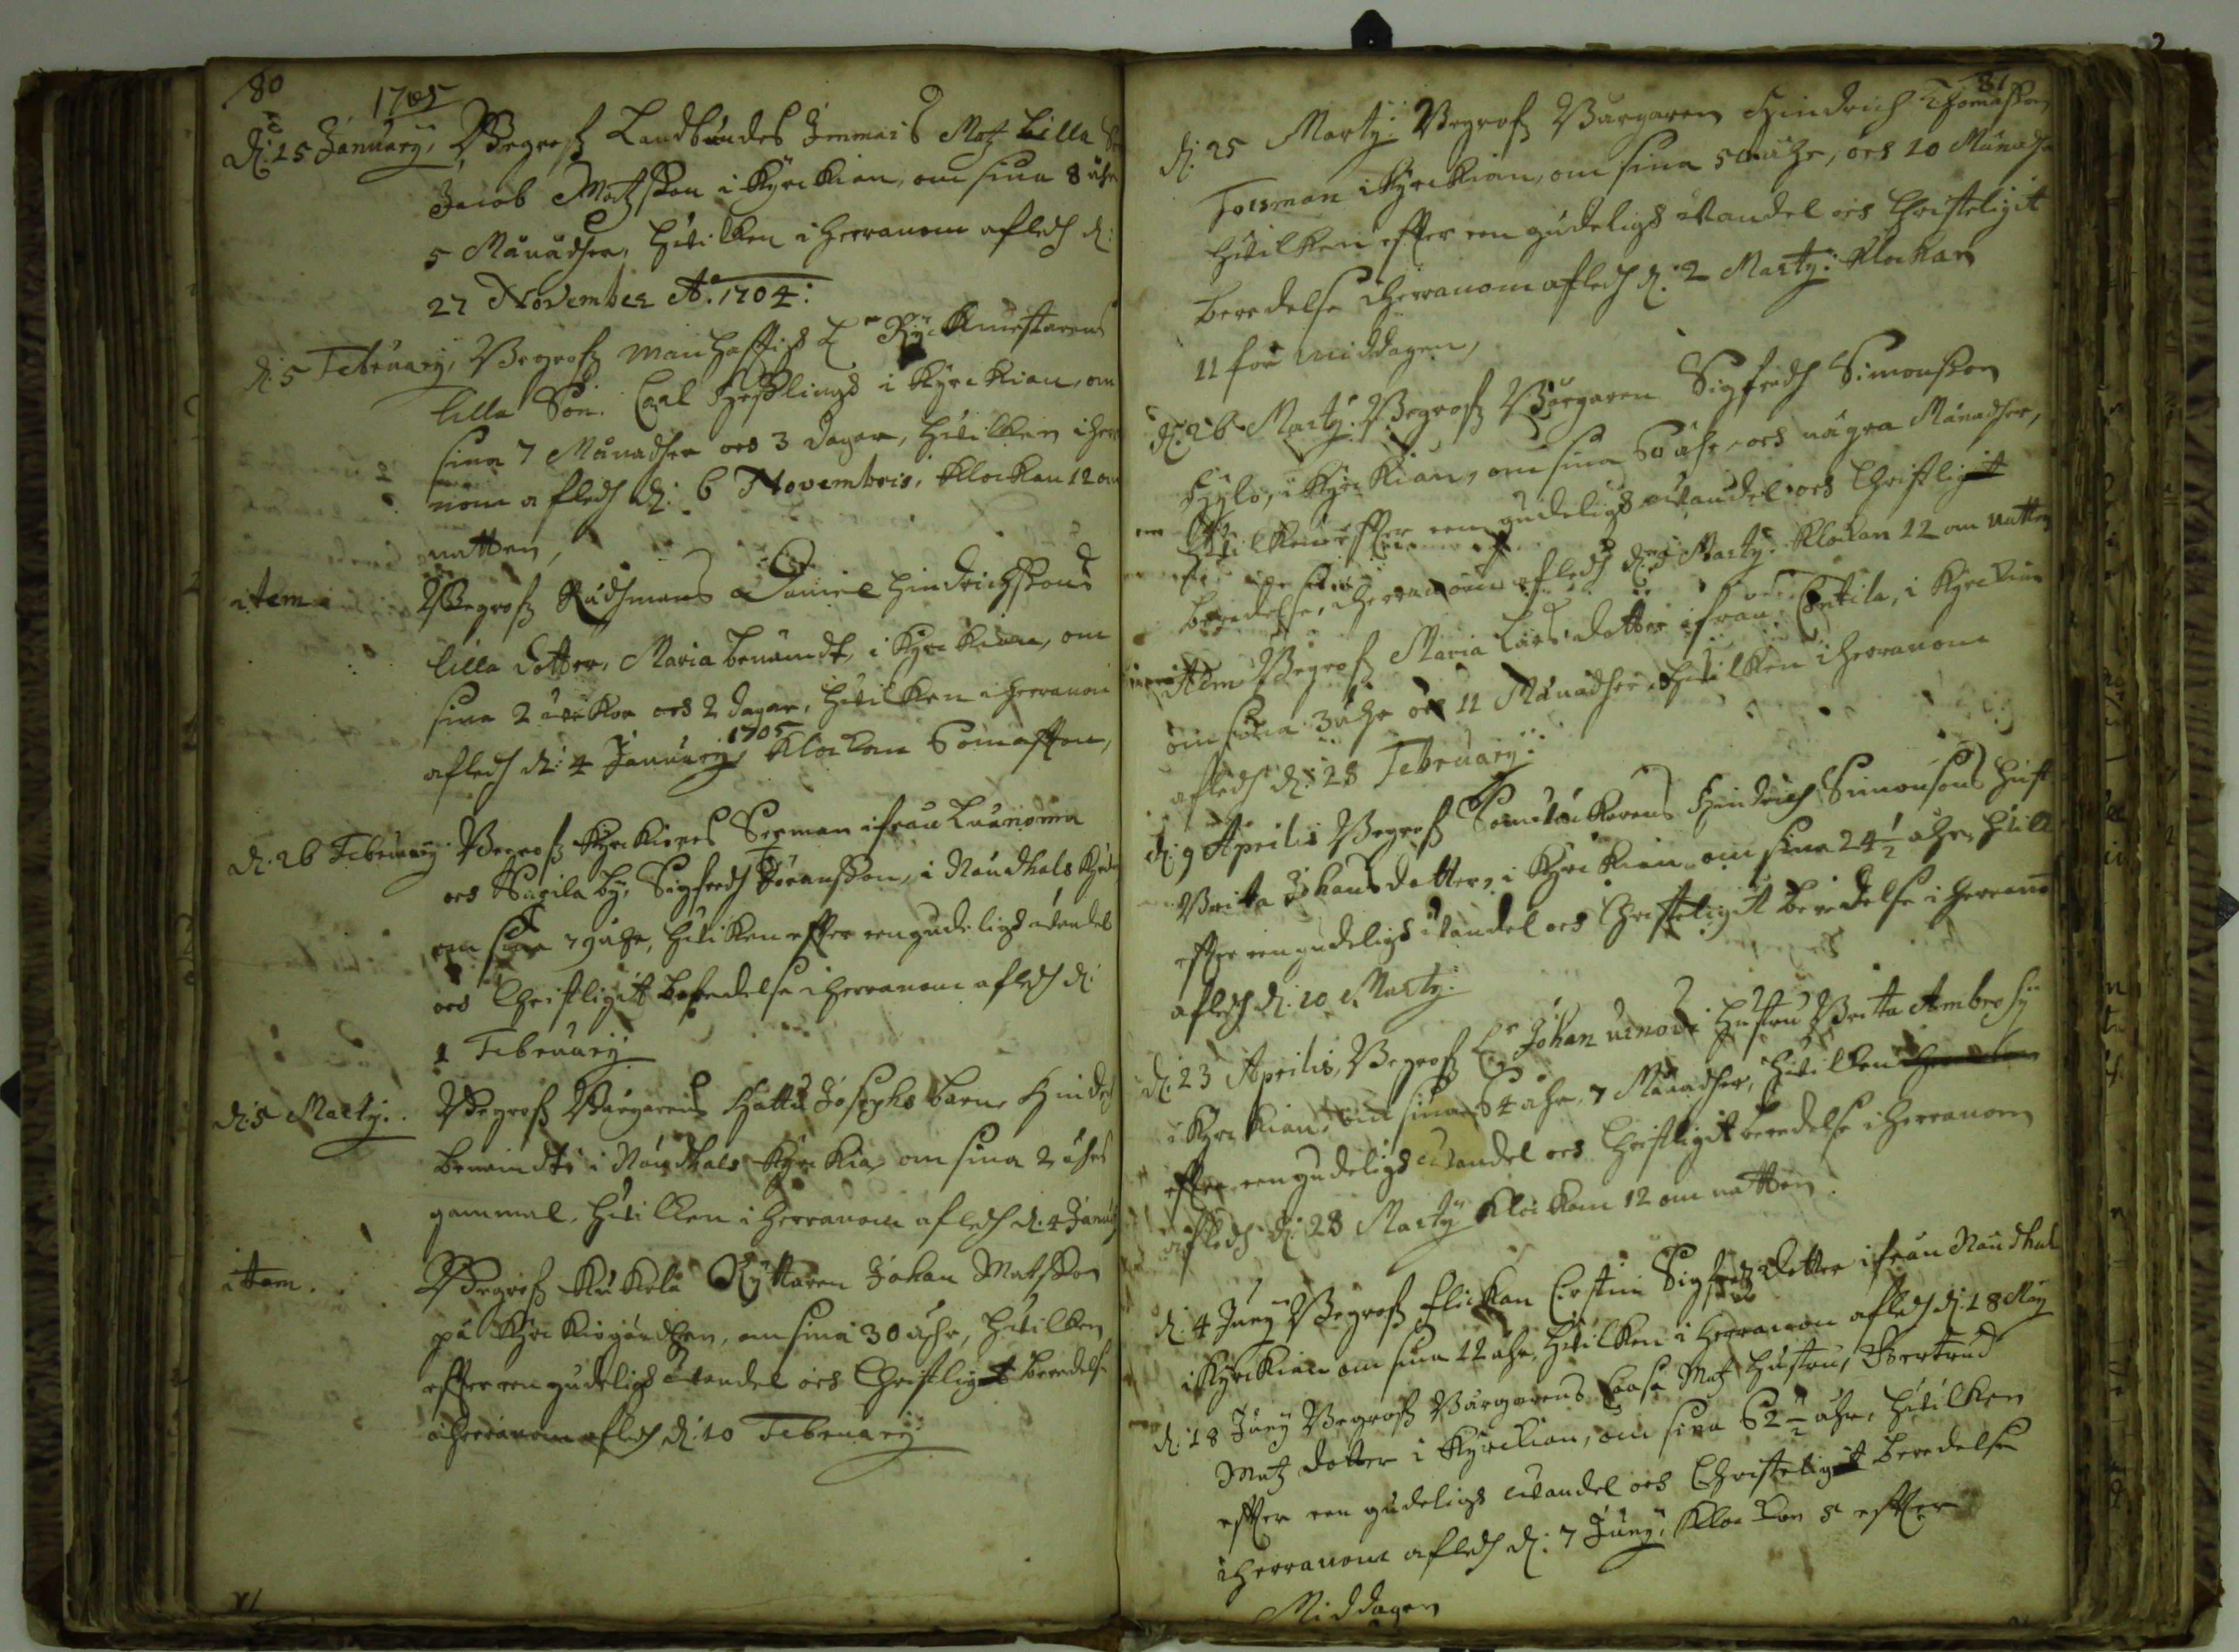 80
1705
d: 25 January, Begrofz Landbondes Immais Matz Lilla
Jacob Matzson i Kyrckian, om sina 8 åhr
5 Månadher, hvilken i herranom afledh d:
27 November A:o 1704:
d: 5 February, Begrofz Manhafftigh Ryckmestarens
lilla Son. Carl i Kyrckian, om
sina 7 Månadher och 3 dagar, hvilken i her
nom afledh d: 6 Novembris, Klockan 12 om
natten,
item Begrofz Rådhmans Daniel Hindrichsons
lilla dotter, Maria benämdt, i Kyrckian, om
sina 2 wikor och 2 dagar, hvilken i herranom
afledh d: 4 January 1705, Klockan 6 om afton,
d: 26 February. Begrofz Kyrckiones ifrån
och by, Sigfredh Jöransson, i Nåudhals Kyrckia
om sina 79 åhr, hvilken effter een gudeligh wandel
och Christligitt beredelse i herranom afledh d:
1 February
d: 5 Marty. Begrofz Borgarens Josephs barn, Hindrich
benämdt, i Nåudhals Kyrckia, om sina 2 åhrs
gammal, hvilken i herranom afledh d. 4 January
item. Begrofz Ryttaren Johan Matsson
på Kyrckiogårdhen, om sina 30 åhr, hvilken
effter een gudeligh wandel och Christligit beredelse
i herranom afledh d: 10 February
81
d: 25 Marty: Begrofz Borgaren Hindrich Thomasson
Forsman i Kyrckian, om sina 50 åhr, och 10 Månadher
hvilken effter een gudeligh wandel och Christeligit
beredelse i herranom afledh d: 2 Marty: Klockan
11 för middagen,
d: 26 Marty. Begrofz Borgaren Sigfredh Simonsson
i Kyrckian, om sina 60 åhr, och några Månadher,
hvilken effter een gudeligh wandel och Christligit
beredelse, i herranom afledh d: Marty. Klockan 12 om natten
Item Begrofz Maria Larsdotter ifrån i Kyrckian
om sina 3 åhr och 11 Månadher, hvilken i herranom
afledh d: 28 February:
d: 9 Aprilis Begrofz Hindrich Simonsons hust
Brita Johansdotter, i Kyrckian, om sina 24 1/2 åhr, hvilk
effter een gudeligh wandel och Christeligit beredelse i herrano
afledh d: 10 Marty:
d: 23 Aprilis, Begrofz Johan hustru Brita Ambrosy
i Kyrckian, om sina 64 åhr, 7 Månadher, hvilken
effter een gudeligh wandel och Christligit beredelse i herranom
afledh d: 28 Marty Klockan 12 om natten.
d. 4 Juny Begrofz flickan Cirstin Sigfredzdotter ifrån Nåudhal
i Kyrckian om sina 12 åhr, hvilken i herranom afledh d: 18 May
d: 18 Juny Begrofz Borgarens Matz hustru, Gertrud
Matz dotter i Kyrckian, om sina 62 1/2 åhr, hvilken
effter een gudeligh wandel och Christeligit beredelse
i herranom afledh d: 7 Juny, Klockan 5 effter
Middagen